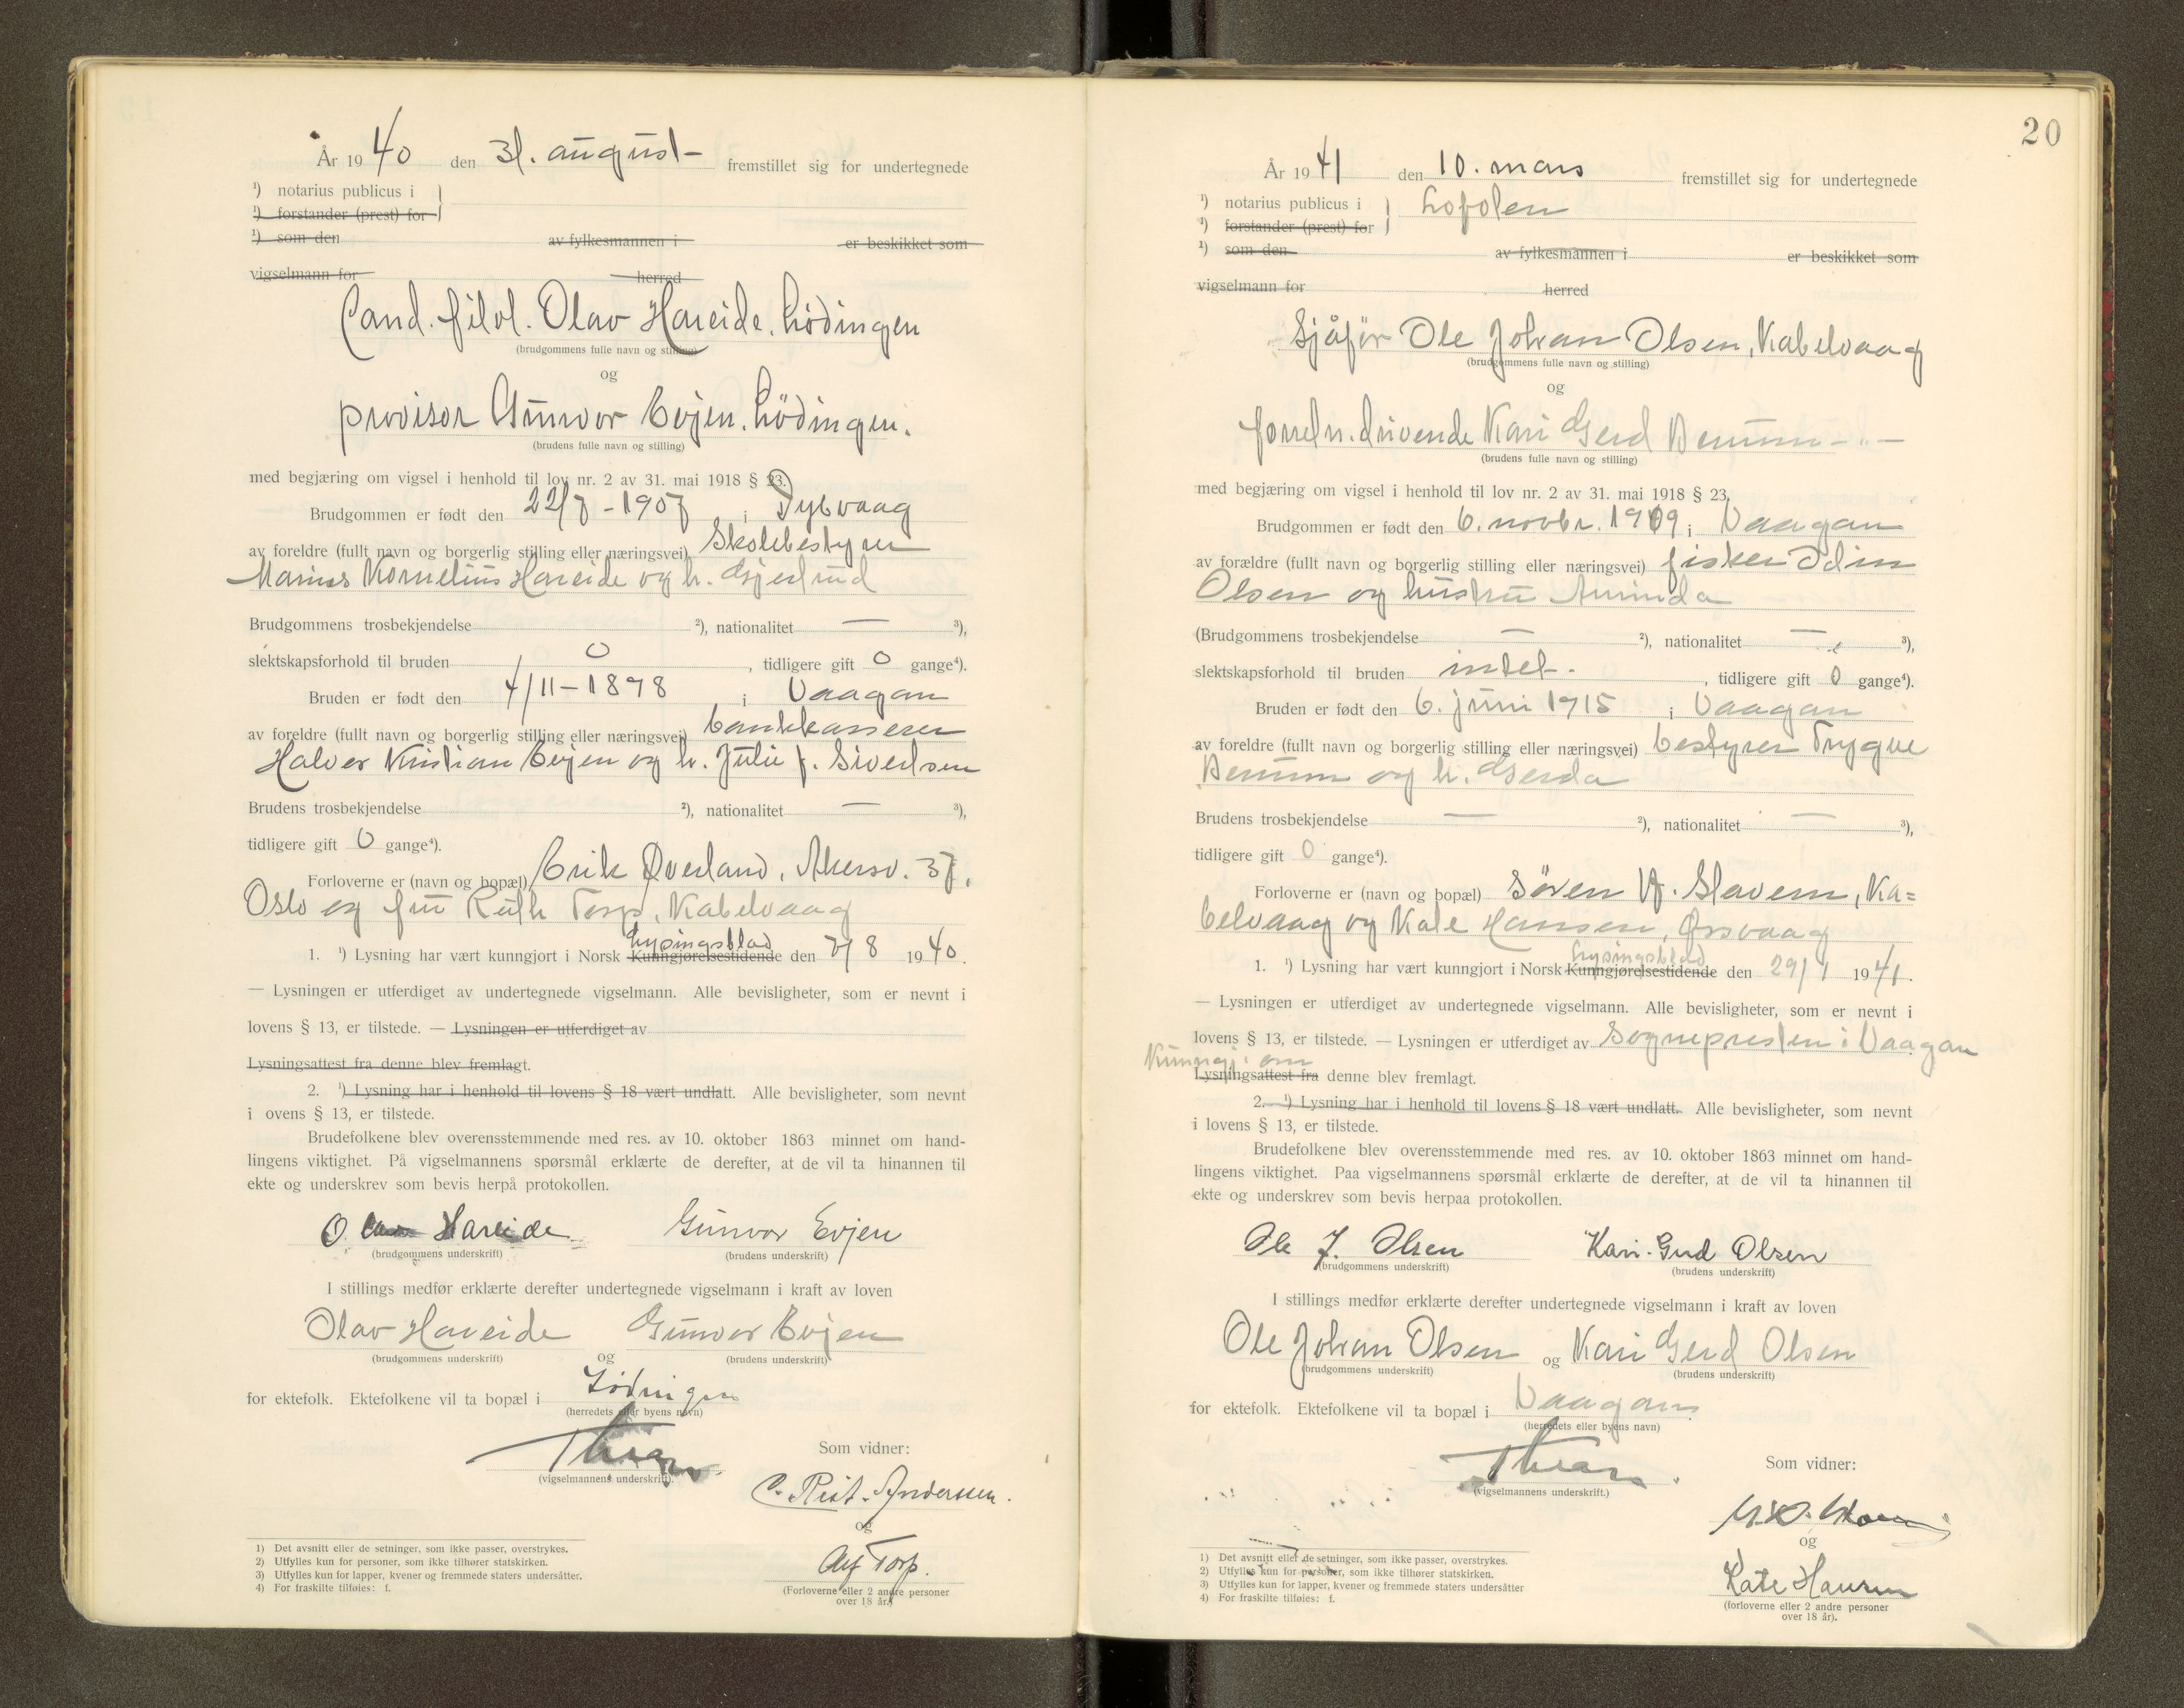 År 1940 den 31. august fremstillet sig for undertegnede
¹) notarius publicus i
¹) forstander (prest) for
¹) som den av fylkesmannen i er beskikket som
vigselmann for herred
Cand. filol. Olav Hareide, Lødingen
(brudgommens fulle navn og stilling)
og
provisor Gunvor Evjen, Lødingen.
(brudens fulle navn og stilling)
med begjæring om vigsel i henhold til lov nr. 2 av 31. mai 1918 § 23.
Brudgommen er født den 22/7 - 1907 i Dybvaag
av foreldre (fullt navn og borgerlig stilling eller næringsvei) Skolebestyrer
Marius Kornelius Hareide og h. Gjertrud
Brudgommens trosbekjendelse ²), nationalitet — ³),
slektskapsforhold til bruden 0, tidligere gift 0 gange⁴).
Bruden er født den 4/11 - 1898 i Vaagan
av foreldre (fullt navn og borgerlig stilling eller næringsvei) bankkasserer
Halvor Kristian Evjen og h. Julie f. Sivertsen
Brudens trosbekjendelse ²), nationalitet — ³),
tidligere gift 0 gange⁴).
Forloverne er (navn og bopæl) Erik Øverland, Akersv. 37,
Oslo og fru Ruth Torp, Kabelvaag
Lysingsblad
1. ¹) Lysning har vært kunngjort i Norsk Kunngjørelsestidende den 7/8 1940.
— Lysningen er utferdiget av undertegnede vigselmann. Alle bevisligheter, som er nevnt i
lovens § 13, er tilstede. — Lysningen er utferdiget av
Lysningsattest fra denne blev fremlagt.
2. ¹) Lysning har i henhold til lovens § 18 vært undlatt. Alle bevisligheter, som nevnt
i ovens § 13, er tilstede.
Brudefolkene blev overensstemmende med res. av 10. oktober 1863 minnet om hand-
lingens viktighet. På vigselmannens spørsmål erklærte de derefter, at de vil ta hinannen til
ekte og underskrev som bevis herpå protokollen.
Olav Hareide Gunvor Evjen
(brudgommens underskrift) (brudens underskrift)
I stillings medfør erklærte derefter undertegnede vigselmann i kraft av loven
Olav Hareide Gunvor Evjen
(brudgommens underskrift) og (brudens underskrift)
for ektefolk. Ektefolkene vil ta bopæl i Lødingen
(herredets eller byens navn)
Som vidner:
(vigselmannens underskrift).
Andersen.
og
Alf Torp.
(Forloverne eller 2 andre personer
over 18 år.)
1) Det avsnitt eller de setninger, som ikke passer, overstrykes.
2) Utfylles kun for personer, som ikke tilhører statskirken.
3) Utfylles kun for lapper, kvener og fremmede staters undersåtter.
4) For fraskilte tilføies: f.
20
År 1941 den 10. mars fremstillet sig for undertegnede
¹) notarius publicus i Lofoten
¹) forstander (prest) for
¹) som den av fylkesmannen i er beskikket som
vigselmann for herred
Sjåfør Ole Johan Olsen, Kabelvaag
(brudgommens fulle navn og stilling)
og
forretn.drivende Kari Gerd Berum - " -
(brudens fulle navn og stilling)
med begjæring om vigsel i henhold til lov nr. 2 av 31. mai 1918 § 23.
Brudgommen er født den 6. novbr. 1909 i Vaagan
av forældre (fullt navn og borgerlig stilling eller næringsvei) fisker Odin
Olsen og hustru
(Brudgommens trosbekjendelse — ²), nationalitet — ³),
slektskapsforhold til bruden intet., tidligere gift 0 gange⁴).
Bruden er født den 6. juni 1915 i Vaagan
av foreldre (fullt navn og borgerlig stilling eller næringsvei) bestyrer Trygve
Berum og h. Gerda
Brudens trosbekjendelse — ²), nationalitet — ³),
tidligere gift 0 gange⁴).
Forloverne er (navn og bopæl) Sören Slavem, Ka=
belvaag og Kate Hansen, Ørsvaag
Lysingsblad
1. ¹) Lysning har vært kunngjort i Norsk Kunngjørelsestidende den 29/1 1941.
— Lysningen er utferdiget av undertegnede vigselmann. Alle bevisligheter, som er nevnt i
lovens § 13, er tilstede. — Lysningen er utferdiget av Sognepresten i Vaagan
Kunngj. om
Lysningsattest fra denne blev fremlagt.
2. ¹) Lysning har i henhold til lovens § 18 vært undlatt. Alle bevisligheter, som nevnt
i lovens § 13, er tilstede.
Brudefolkene blev overensstemmende med res. av 10. oktober 1863 minnet om hand-
lingens viktighet. Paa vigselmannens spørsmål erklærte de derefter, at de vil ta hinannen til
ekte og underskrev som bevis herpaa protokollen.
Ole J. Olsen Kari-Gerd Olsen
(brudgommens underskrift) (brudens underskrift)
I stillings medfør erklærte derefter undertegnede vigselmann i kraft av loven
Ole Johan Olsen og Kari Gerd Olsen
(brudgommens underskrift) (brudens underskrift)
for ektefolk. Ektefolkene vil ta bopæl i Vaagan
(herredets eller byens navn)
Som vidner:
(vigselmannens underskrift.)
og
Kate Hansen
(forloverne eller 2 andre personer
over 18 år).
1) Det avsnitt eller de setninger, som ikke passer, overstrykes.
2) Utfylles kun for personer, som ikke tilhører statskirken.
3) Utfylles kun for lapper, kvener og fremmede staters undersåtter
4) For fraskilte tilføies: f.